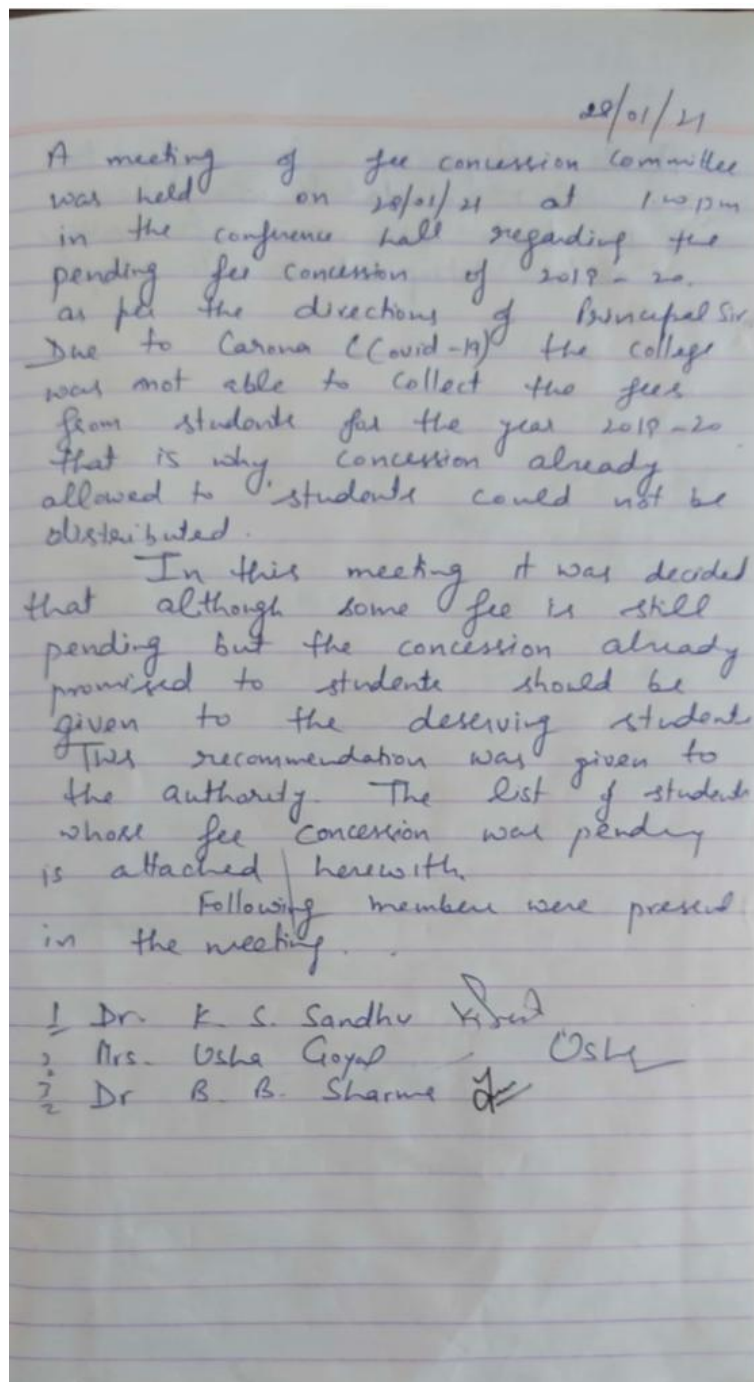 28/01/21
A meeting of fee concession Committee
was held on 28/01/21 at 1 00 pm
in the conference hall regarding the
pending fee concession of 2019-20.
as per the directions of Principal Sir.
Due to Carona (Covid-19) the college
was not able to collect the fees
from students for the year 2019-20
that is why, concession already
allowed to students could not be
distributed.
In this meeting it was decided
that although some fee is still
pending but the concession already
promised to students should be
given to the deserving students
This recommendation was given to
the authority. The list of students
whose fee concession was pending
is attached herewith.
Following members were present
in the meeting.
1 Dr. K. S. Sandhu
2. Mrs. Usha Goyal Usha
3 Dr B. B. Sharma